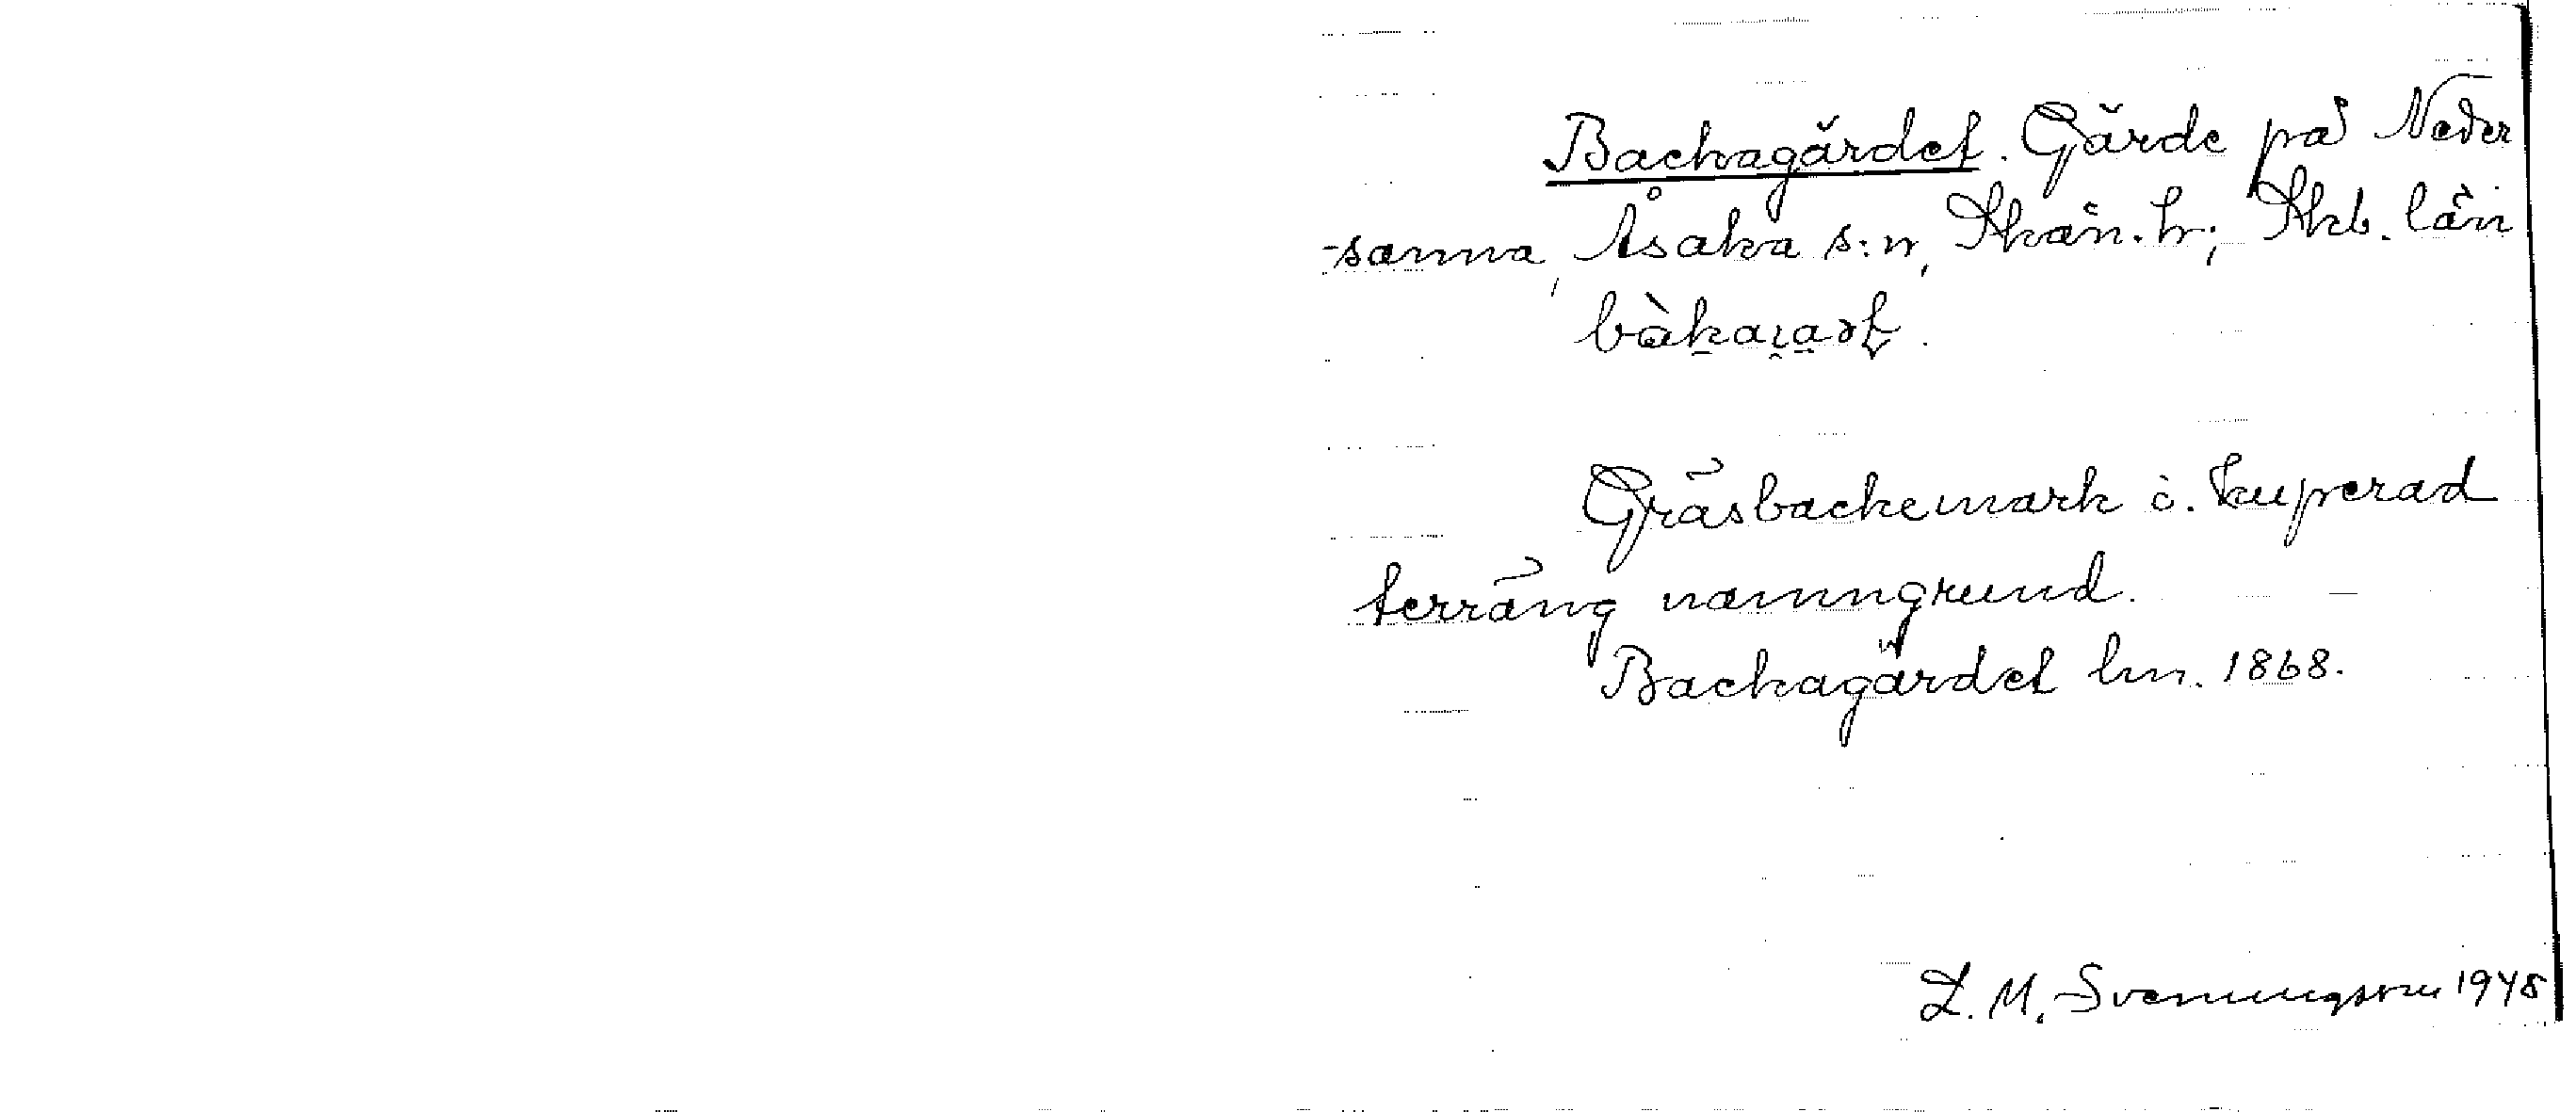 Backagärdet. Gärde på Neder
-sanna, Åsaka s:n, Skån. hr; Skb. län
Gräsbackemark i. kuperad
terräng namngrund.
Backagärdet lm. 1868.
L. M. Svenungsson 1948